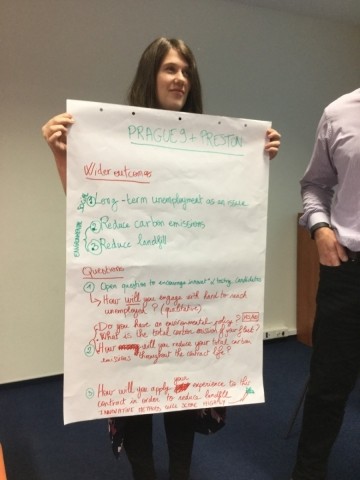 PRAGUE9 + PRESTON
Wider outcomes
① Long-term unemployment as an issue
② Reduce carbon emissions
③ Reduce landfill
ENVIRONMENT
Questions
① Open question to encourage innovat° / being candidates
↳ How will you engage with hard to reach
unemployed? (qualitative)
Do you have an environmental policy? YES/NO
What is the total carbon emission of your fleet?
② How will you reduce your total carbon
emissions throughout the contract life?
③ How will you apply your experience to this
contract in order to reduce landfill
INNOVATIVE METHODS WILL SCORE HIGHLY